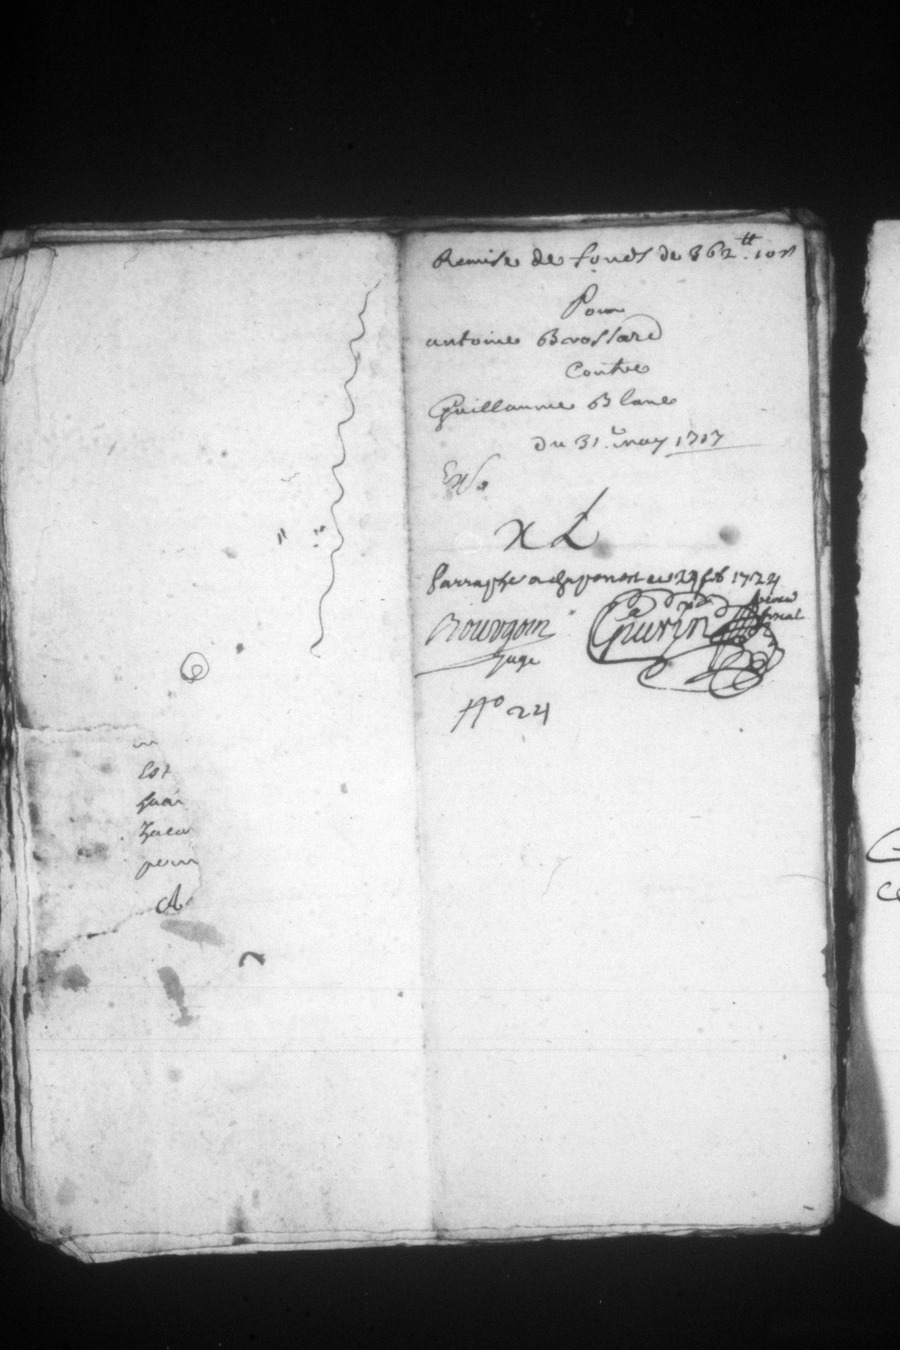 Remise de fonds de 862.tt 10s
Pour
antoine Brossard
Contre
Guillaume Blanc
du 31.e may 1717
Exp.
Parraphé a chaponost ce 29 feb 1724
Bourgoin
Juge
Guerin
procu
fiscal
No 24
Est
pour